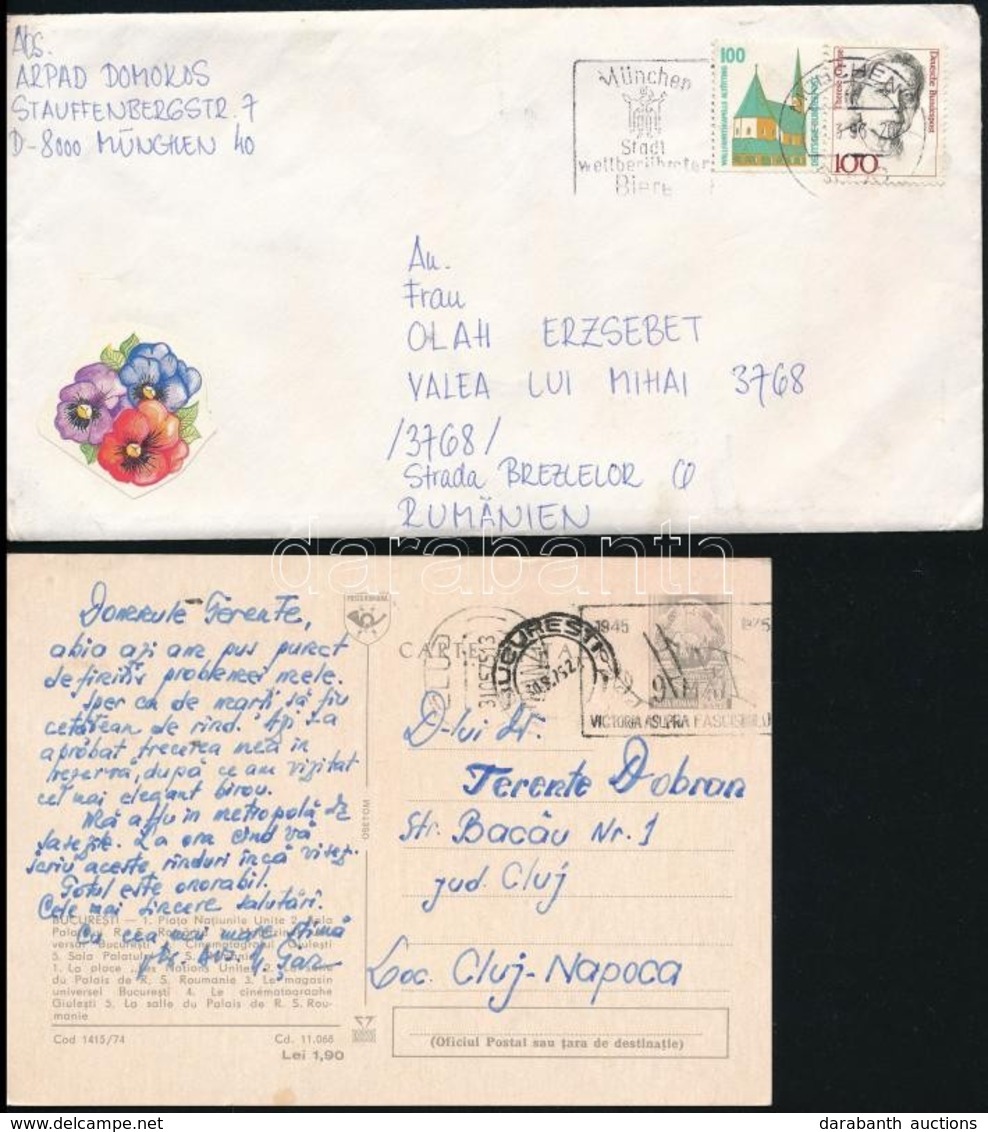 Abs.
ARPAD DOMOKOS
STAUFFENBERGSTR. 7
D-8000 MÜNCHEN 40
München
Stadt
weltberühmter
Biere
100
DEUTSCHE BUNDESPOST
Deutsche Bundespost
100
An.
Frau
OLAH ERZSEBET
VALEA LUI MIHAI 3768
/3768/
Strada BREZLELOR
RUMÄNIEN
darabanth
Domnule Terente,
abia azi am pus punct
definitiv problemei mele.
Sper ca de marți să fiu
cetățean de rînd. Azi s-a
aprobat trecerea mea în
rezervă, după ce am vizitat
cel mai elegant birou.
Mă aflu în metropolă de
La ora cînd vă
scriu aceste rînduri încă
Totul este onorabil.
Cele mai sincere salutări.
Cu cea mai mare stimă
BUCUREȘTI — 1. Piața Națiunile Unite 2. Sala
versal București Cinematograful Giulești
5. Sala Palatului
1. La place „des Nations Unites" 2.
du Palais de R. S. Roumanie 3. Le magasin
universel București 4. Le cinématographe
Giulești 5. La salle du Palais de R. S. Rou-
manie
Cod 1415/74 Cd. 11.068
Lei 1,90
OBETOM
CARTE POSTALA
CLUJ
31.05.75.13
BUCUREȘTI
1945 1975
9 MAI
VICTORIA ASUPRA FASCISMULUI
D-lui
Terente Dobran
Str. Bacău Nr. 1
jud. Cluj
Loc. Cluj-Napoca
(Oficiul Postal sau țara de destinație)
darabanth auctions